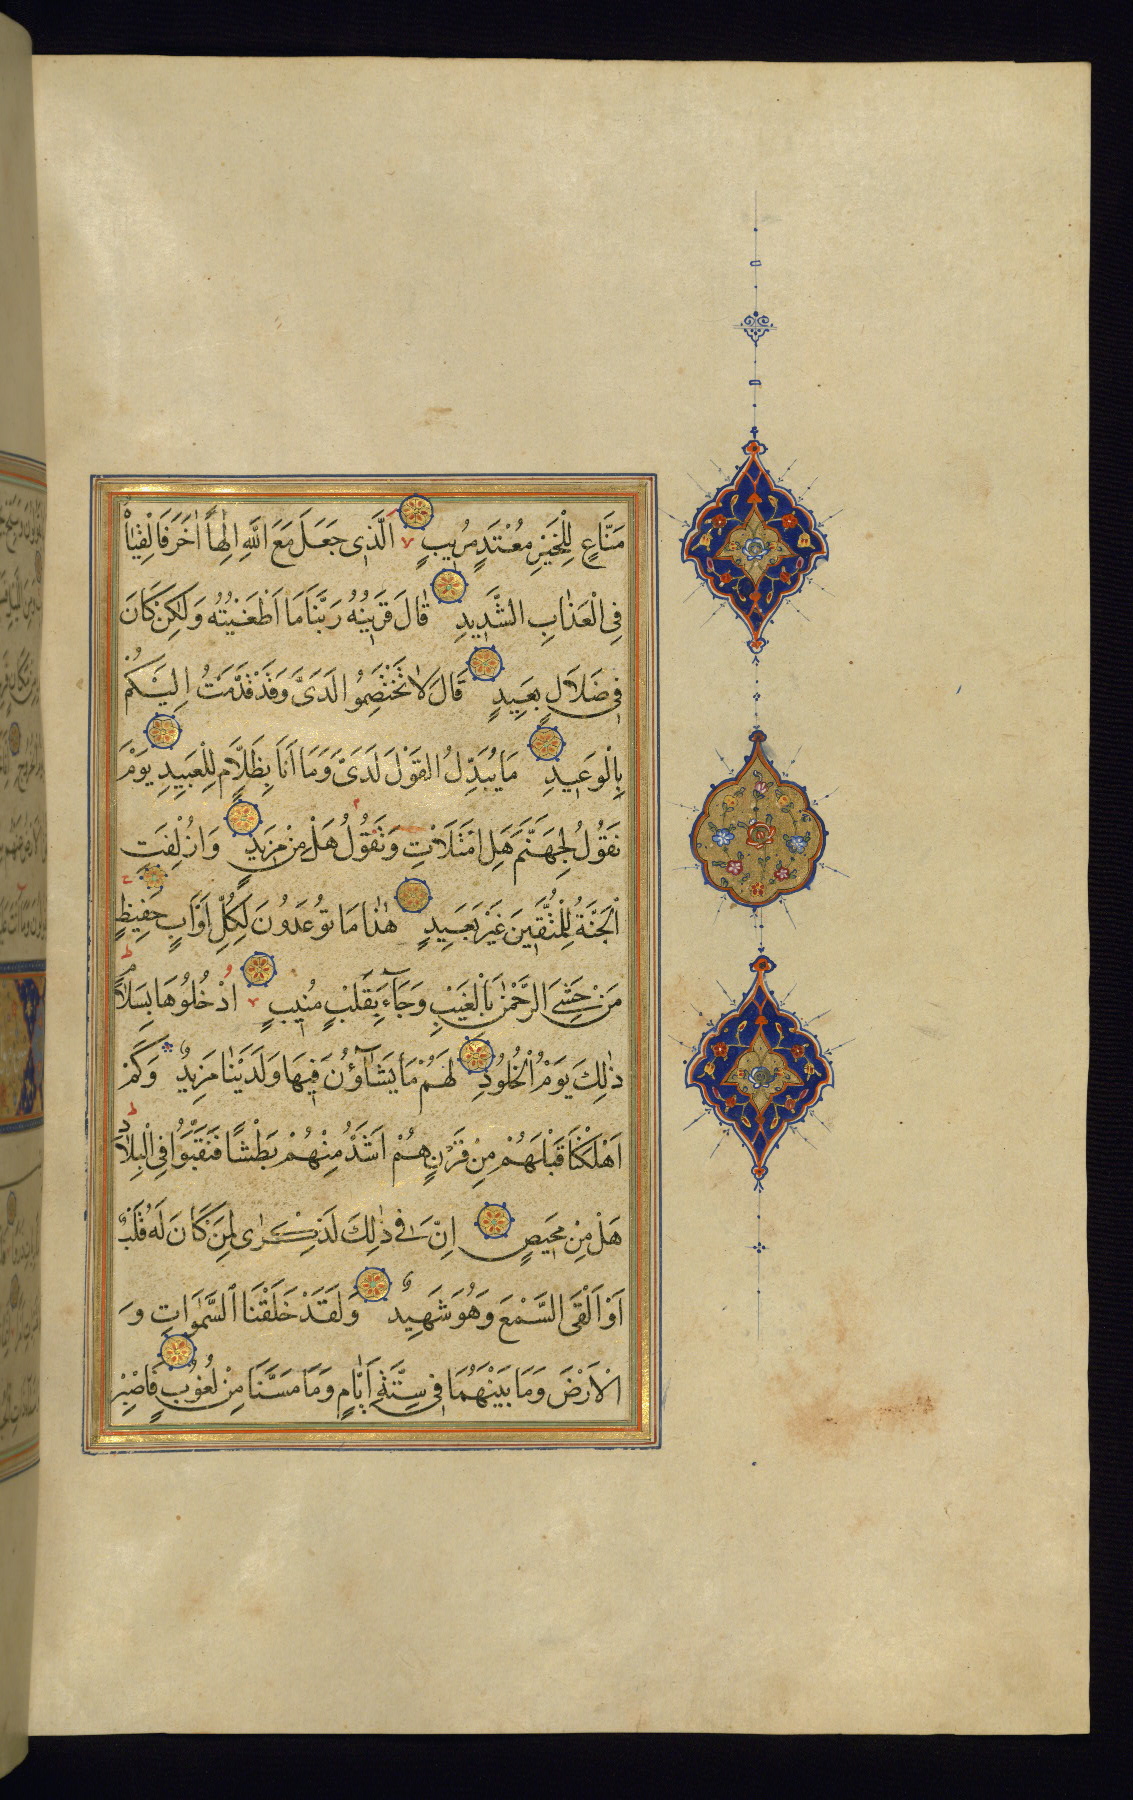 مَنَّاعٍ لِلْخَيْرِ مُعْتَدٍ مُرِيبٍ اَلَّذِى جَعَلَ مَعَ اللَّهِ اِلٰهاً اٰخَرَ فَاَلْقِيَاهُ
فِى الْعَذَابِ الشَّدِيدِ قَالَ قَرِينُهُ رَبَّنَا مَا اَطْغَيْتُهُ وَلٰكِنْ كَانَ
فِى ضَلَالٍ بَعِيدٍ قَالَ لَا تَخْتَصِمُوا لَدَىَّ وَقَدْ قَدَّمْتُ اِلَيْكُمْ
بِالْوَعِيدِ مَا يُبَدَّلُ الْقَوْلُ لَدَىَّ وَمَا اَنَا بِظَلَّامٍ لِلْعَبِيدِ يَوْمَ
نَقُولُ لِجَهَنَّمَ هَلِ امْتَلَأْتِ وَتَقُولُ هَلْ مِنْ مَزِيدٍ وَاُزْلِفَتِ
الْجَنَّةُ لِلْمُتَّقِينَ غَيْرَ بَعِيدٍ هٰذَا مَا تُوعَدُونَ لِكُلِّ اَوَّابٍ حَفِيظٍ
مَنْ خَشِىَ الرَّحْمٰنَ بِالْغَيْبِ وَجَآءَ بِقَلْبٍ مُنِيبٍ اُدْخُلُوهَا بِسَلَامٍ
ذٰلِكَ يَوْمُ الْخُلُودِ لَهُمْ مَا يَشَآؤُنَ فِيهَا وَلَدَيْنَا مَزِيدٌ وَكَمْ
اَهْلَكْنَا قَبْلَهُمْ مِنْ قَرْنٍ هُمْ اَشَدُّ مِنْهُمْ بَطْشًا فَنَقَّبُوا فِى الْبِلَادِ
هَلْ مِنْ مَحِيصٍ اِنَّ فِى ذٰلِكَ لَذِكْرٰى لِمَنْ كَانَ لَهُ قَلْبٌ
اَوْ اَلْقَى السَّمْعَ وَهُوَ شَهِيدٌ وَلَقَدْ خَلَقْنَا السَّمٰوَاتِ وَ
الْاَرْضَ وَمَا بَيْنَهُمَا فِى سِتَّةِ اَيَّامٍ وَمَا مَسَّنَا مِنْ لُغُوبٍ فَاصْبِرْ